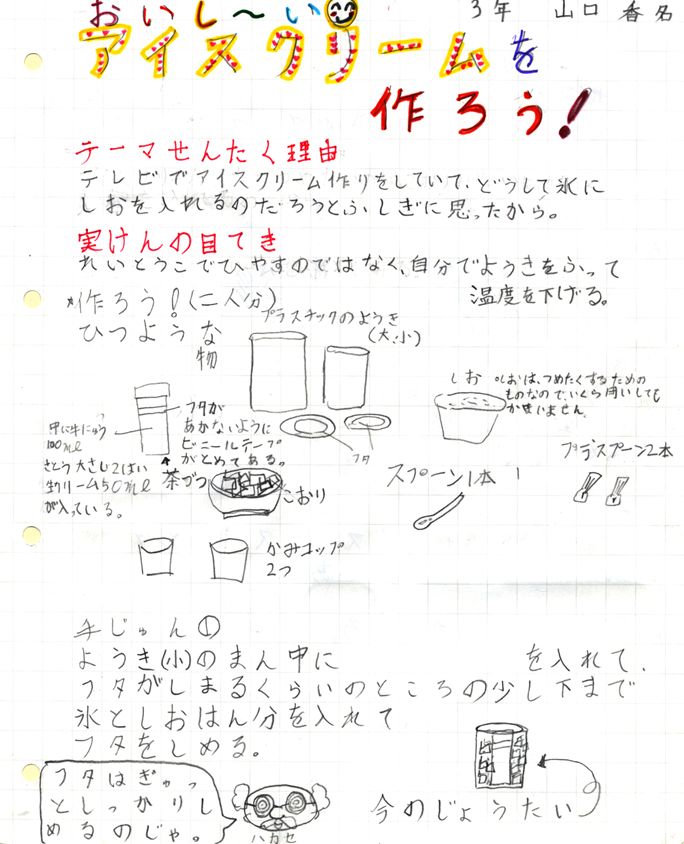 おいし〜い
3年 山口 香名
アイスクリームを
作ろう!
テーマせんたく理由
テレビでアイスクリーム作りをしていて、どうして氷に
しおを入れるのだろうとふしぎに思ったから。
実けんの目てき
れいとうこでひやすのではなく、自分でようきをふって
温度を下げる。
*作ろう!(二人分)
ひつような
物
プラスチックのようき
(大、小)
しお
○しおは、つめたくするための
ものなので、いくら用いしても
かまいません。
中に牛にゅう
100ml
さとう 大さじ2はい
生クリーム50ml
が入っている。
フタが
あかないように
ビニールテープ
がとめてある。
茶づつ
フタ
こおり
スプーン1本
プラスプーン2本
かみコップ
2つ
手じゅんの①
ようき(小)のまん中に を入れて、
フタがしまるくらいのところの少し下まで
氷としおはん分を入れて
フタをしめる。
フタはぎゅっ
としっかりし
めるのじゃ。
ハカセ
今のじょうたい